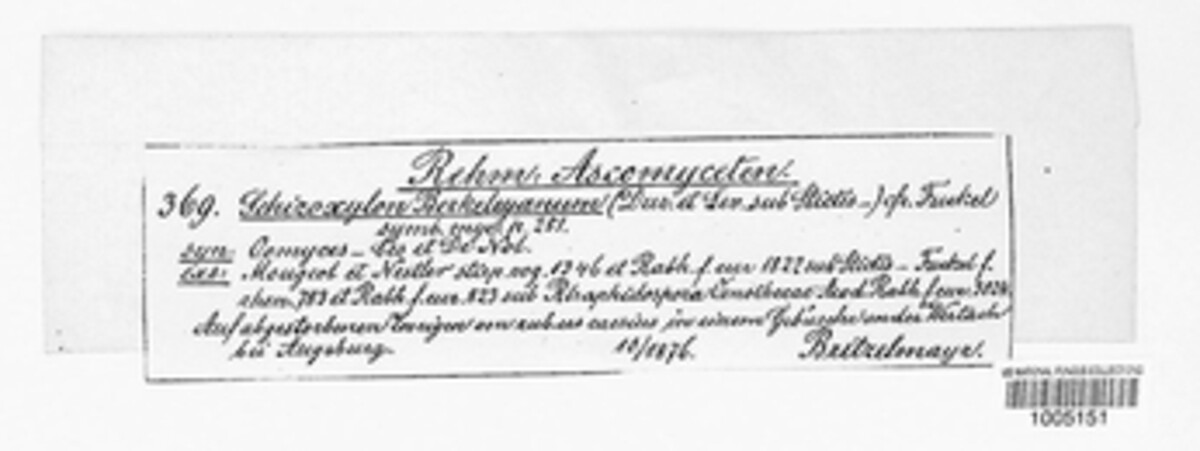 Rehm. Ascomyceten.
369. Schizoxylon Berkeleyanum (Dur. et Lev. sub Stictis _) cfr. Fuckel
symb. myc. p. 251.
syn: Ocmyces _ Ces et De Not.
exs: Mougeot et Nestler stirp. vog. 1346 et Rabh. f. eur 1822 sub Stictis _ Fuckel f.
rhen. 783 et Rabh f. eur. 823 sub Rhaphidospora Rabh. f. eur. 3024
Auf abgestorbenen Zweigen von rubus caesius in einem Gebüsche an der Wertach
bei Augsburg. 10/1876. Britzelmayr.
US NATIONAL FUNGUS COLLECTIONS
1005151